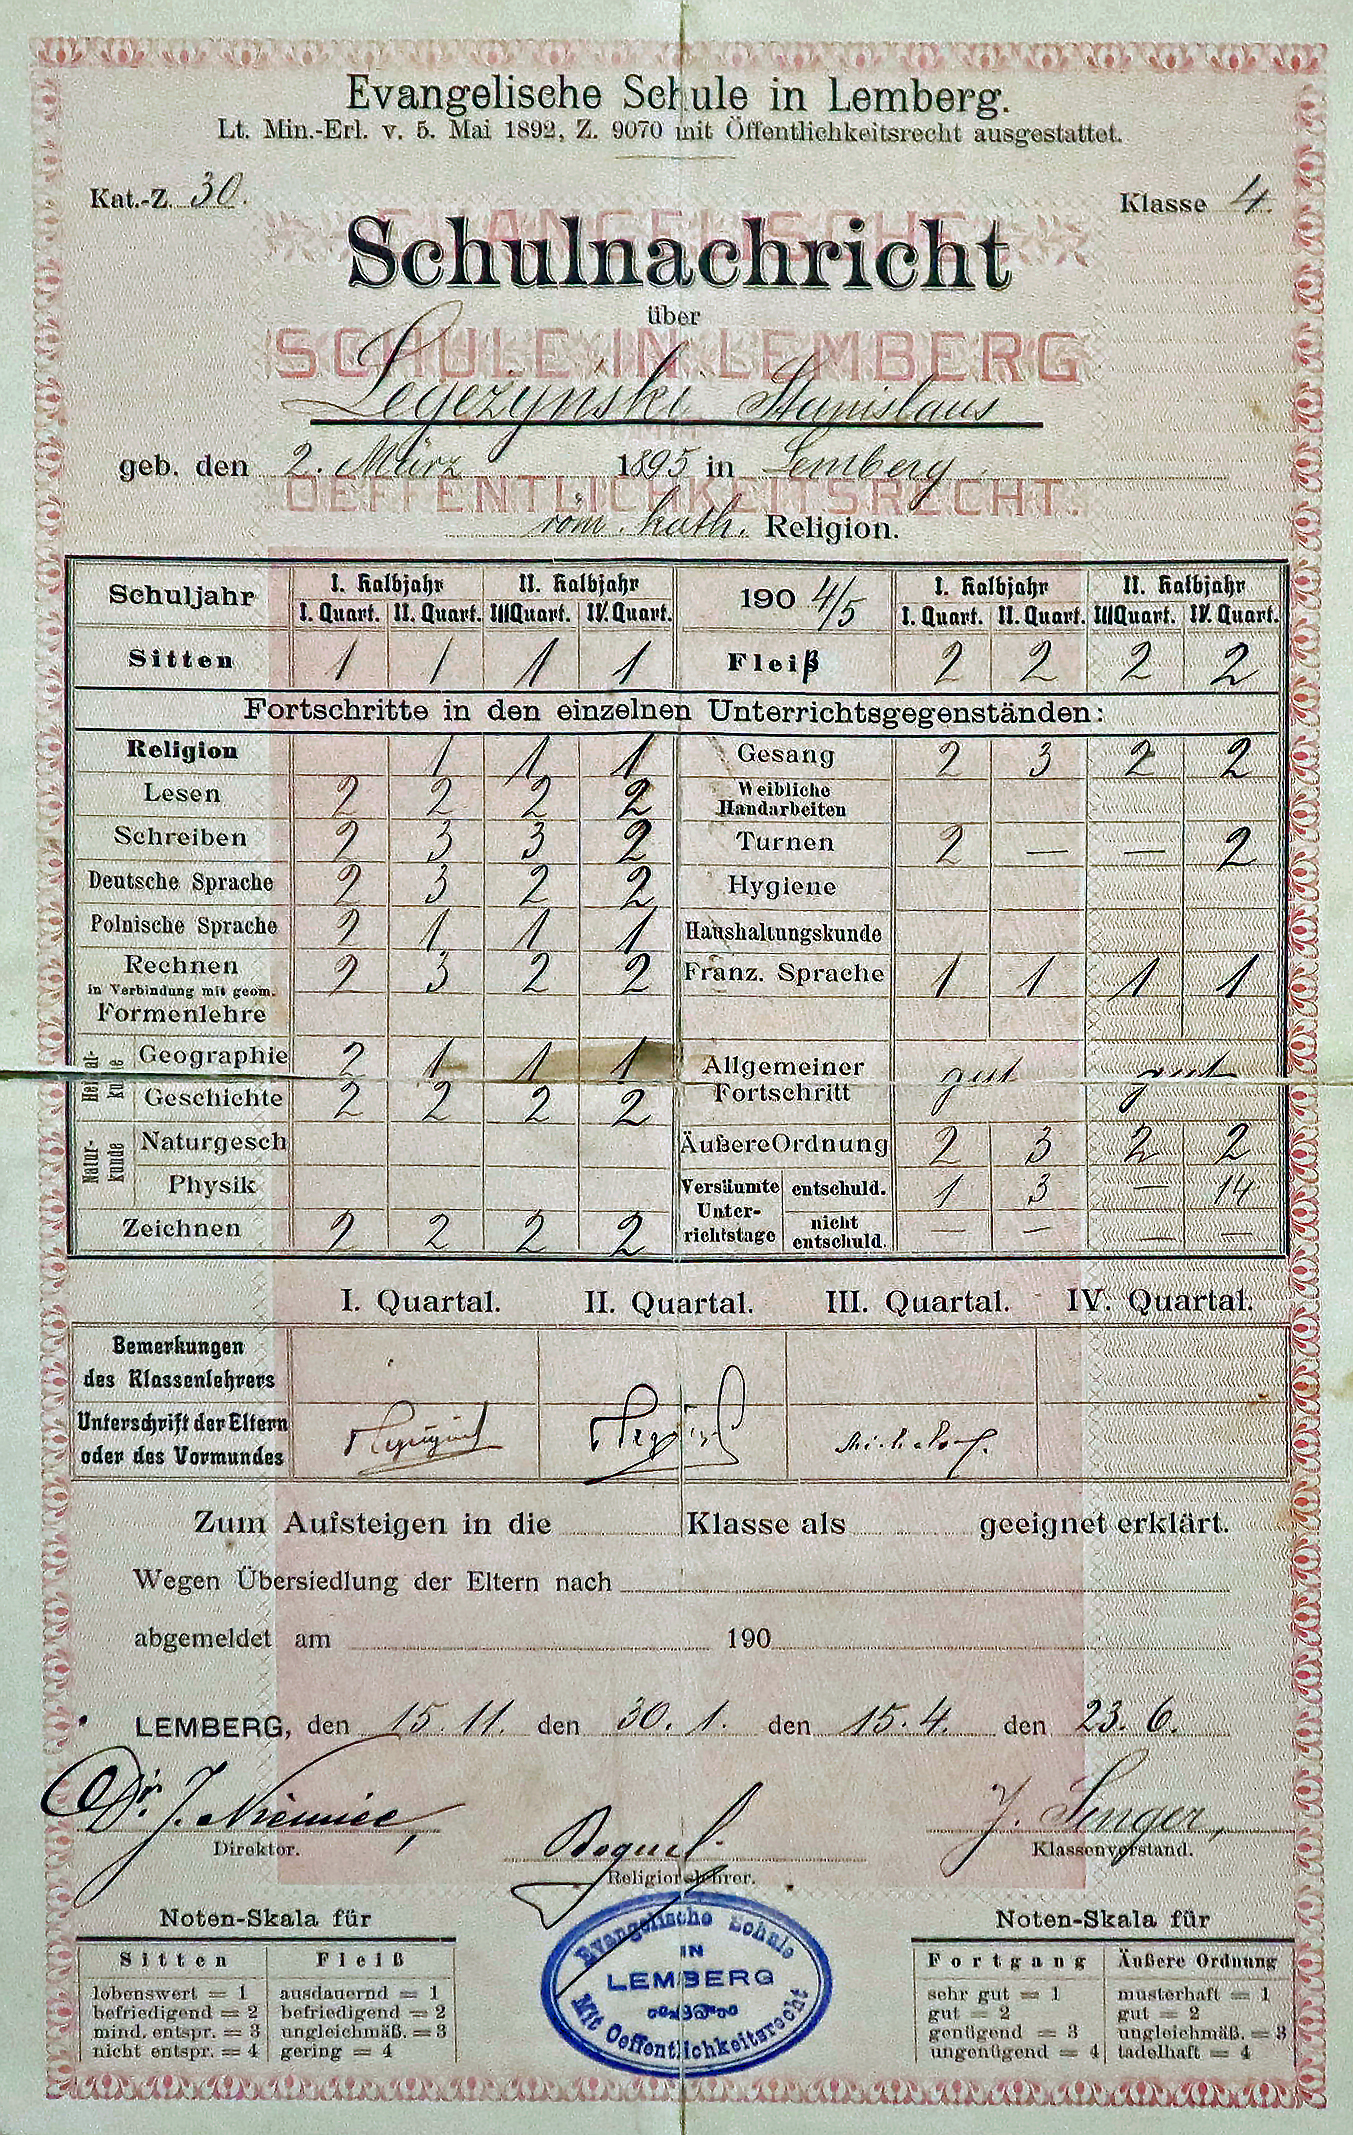 Evangelische Schule in Lemberg.
Lt. Min.-Erl. v. 5. Mai 1892, Z. 9070 mit Öffentlichkeitsrecht ausgestattet.
Kat.-Z. 30. Klasse 4.
EVANGELISCHE
Schulnachricht
über
SCHULE IN LEMBERG
Legeżyński Stanislaus
geb. den 2. März 1895 in Lemberg.
OEFFENTLICHKEITSRECHT.
röm. kath. Religion.
Schuljahr I. Halbjahr II. Halbjahr 190 4/5 I. Halbjahr II. Halbjahr
I. Quart. II. Quart. III Quart. IV. Quart. I. Quart. II. Quart. III Quart. IV. Quart.
Sitten 1 1 1 1 Fleiß 2 2 2 2
Fortschritte in den einzelnen Unterrichtsgegenständen:
Religion 1 1 1 Gesang 2 3 2 2
Lesen 2 2 2 2 Weibliche Handarbeiten
Schreiben 2 3 3 2 Turnen 2 — — 2
Deutsche Sprache 2 3 2 2 Hygiene
Polnische Sprache 2 1 1 1 Haushaltungskunde
Rechnen 2 3 2 2 Franz. Sprache 1 1 1 1
in Verbindung mit geom.
Formenlehre
Heimatkunde Geographie 2 1 1 1 Allgemeiner Fortschritt gut gut
Geschichte 2 2 2 2
Naturkunde Naturgesch Äußere Ordnung 2 3 2 2
Physik Versäumte Unterrichtstage entschuld. 1 3 — 14
Zeichnen 2 2 2 2 nicht entschuld. — — — —
I. Quartal. II. Quartal. III. Quartal. IV. Quartal.
Bemerkungen
des Klassenlehrers
Unterschrift der Eltern
oder des Vormundes
Zum Aufsteigen in die Klasse als geeignet erklärt.
Wegen Übersiedlung der Eltern nach
abgemeldet am 190
LEMBERG, den 15. 11. den 30. 1. den 15. 4. den 23. 6.
Dr. J. Niemiec, J. Senger,
Direktor. Klassenvorstand.
Religionslehrer.
Evangelische Schule
IN
LEMBERG
Mit Oeffentlichkeitsrecht
Noten-Skala für Noten-Skala für
Sitten Fleiß Fortgang Äußere Ordnung
lobenswert = 1 ausdauernd = 1 sehr gut = 1 musterhaft = 1
befriedigend = 2 befriedigend = 2 gut = 2 gut = 2
mind. entspr. = 3 ungleichmäß. = 3 genügend = 3 ungleichmäß. = 3
nicht entspr. = 4 gering = 4 ungenügend = 4 tadelhaft = 4